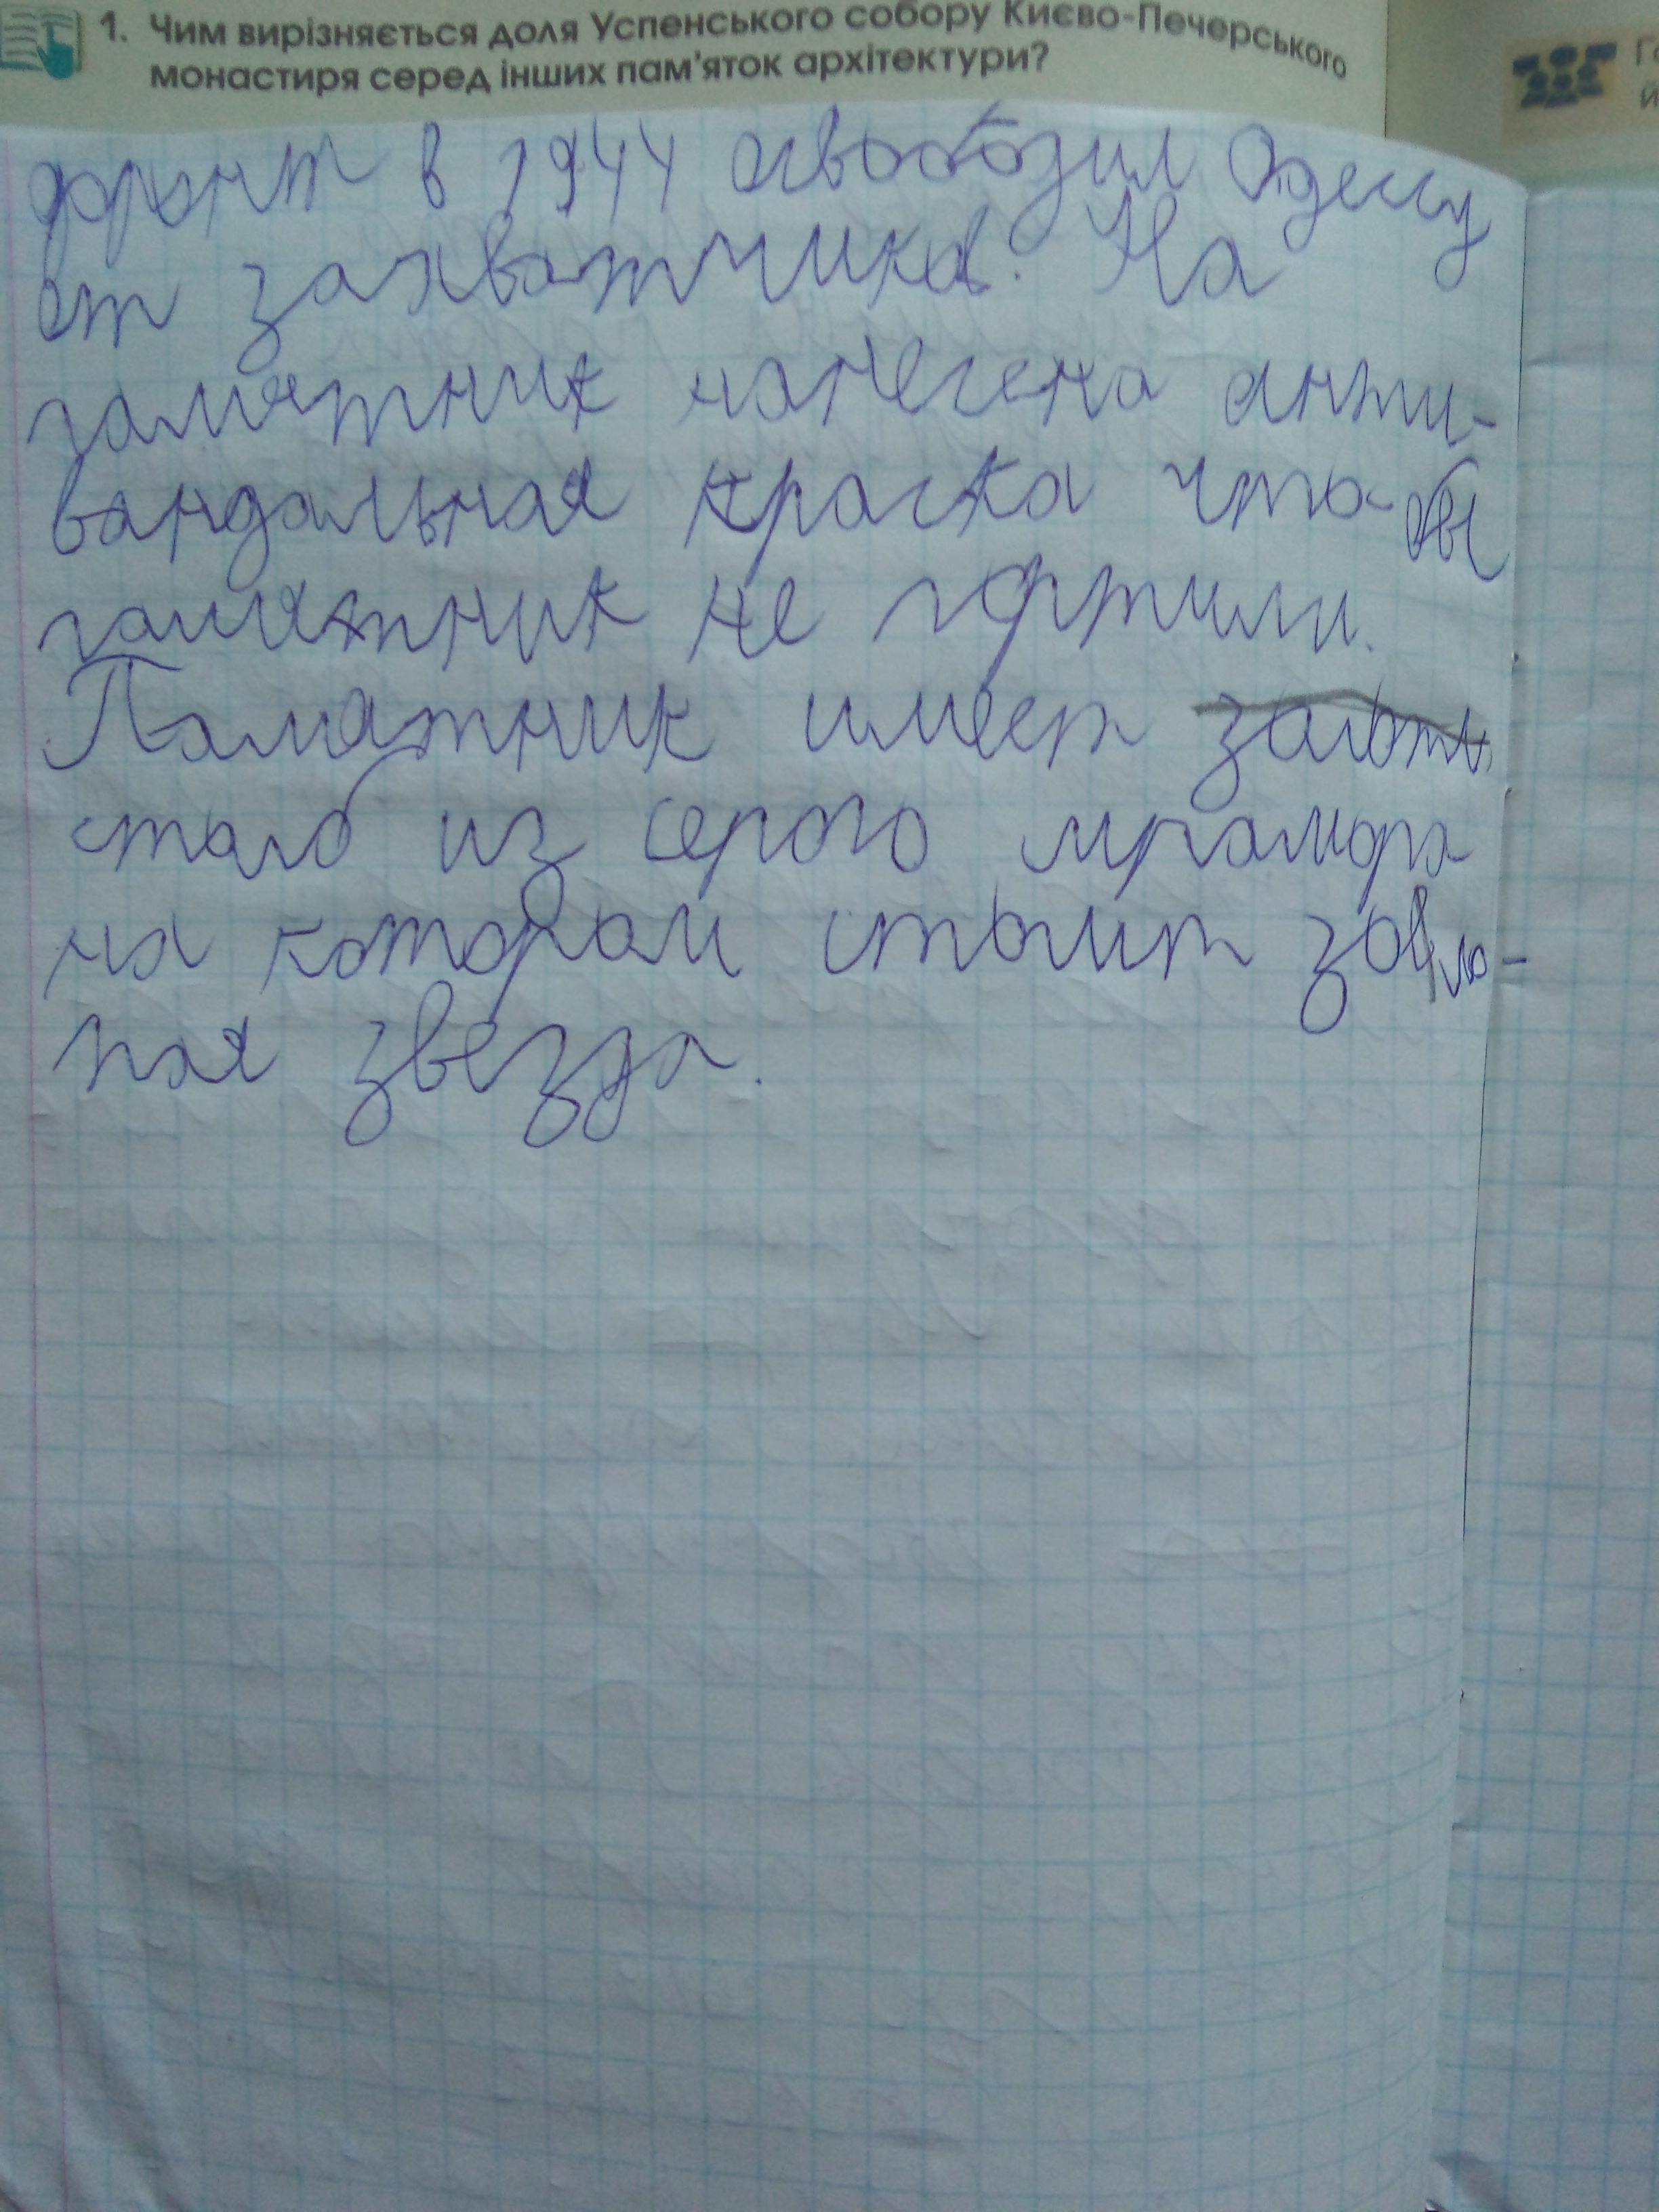 1. Чим вирізняється доля Успенського собору Києво-Печерського
монастиря серед інших пам'яток архітектури?
фронт в 1944 освободил Одессу
от захватчиков. На
памятник нанесена анти-
вандальная краска что-бы
памятник не портили.
Памятник имеет
столб из серого мрамора
на котором стоит
звезда.